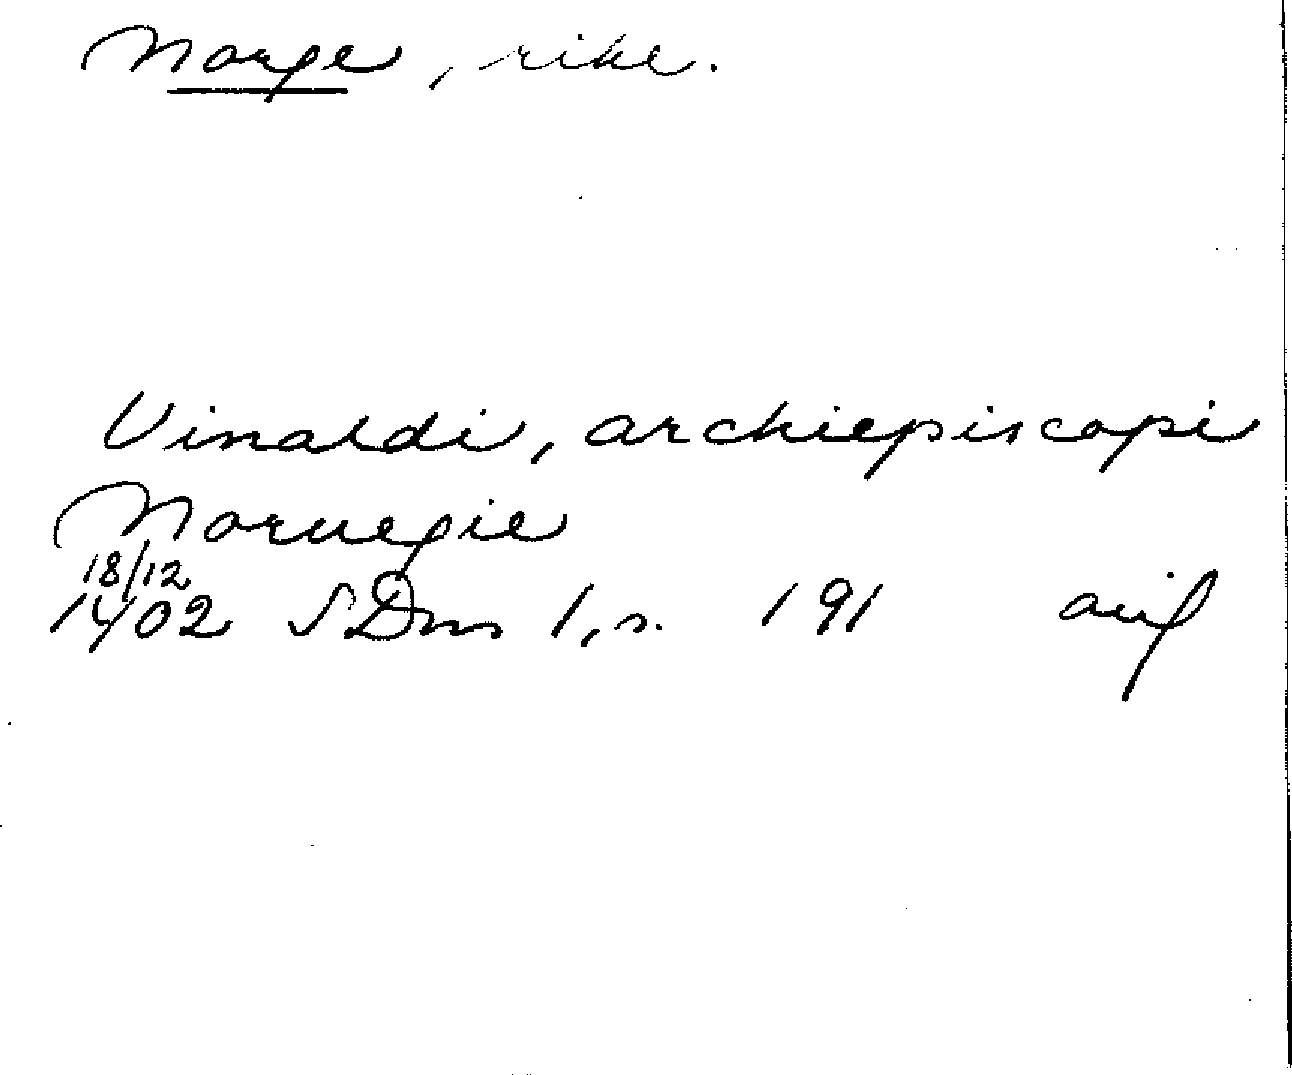 Norge, rike.
Vinaldi, archiepiscopi
Noruegie
18/12
1402 SDns 1, s. 191 avif